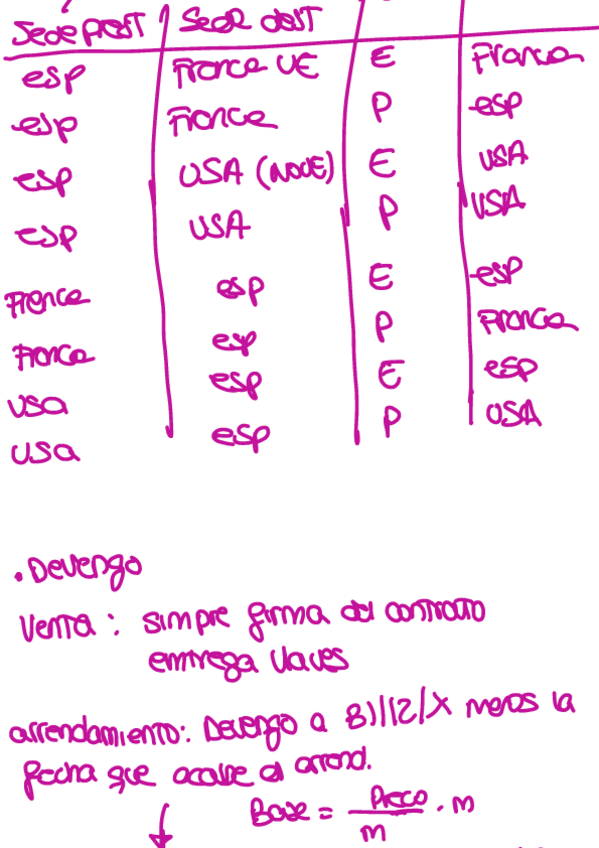 Sede prest Sede dest
esp France UE E France
esp France P esp
esp USA (NOUE) E USA
esp USA P USA
France esp E esp
France esp P France
usa esp E esp
usa esp P USA
. Devengo
Venta : simpre firma del contrato
emtrega llaves
arrendamiento: Devengo a 31/12/X menos la
fecha que acabe el arrend.
Base = Preco / m . m